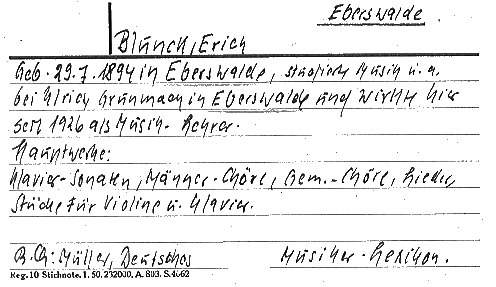 Eberswalde
Blunck, Erich
Geb. 29.7.1894 in Eberswalde, studierte Musik u.a.
bei Ulrich Grunmach in Eberswalde und wirkte hier
seit 1926 als Musik-Lehrer.
Hauptwerke:
Klavier-Sonaten, Männer-Chöre, Gem.-Chöre, Lieder,
Stücke für Violine u. Klavier.
Müller, Deutsches Musiker-Lexikon.
Reg. 10 Stichnote. 1. 50. 232000, A. 803. S. 4662